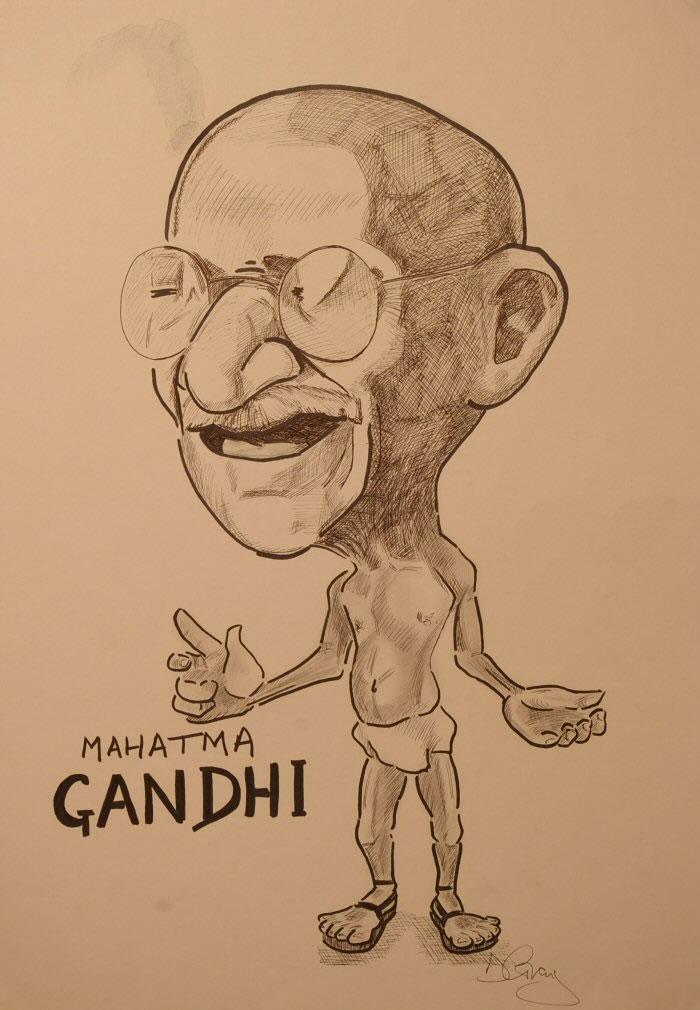 MAHATMA
GANDHI